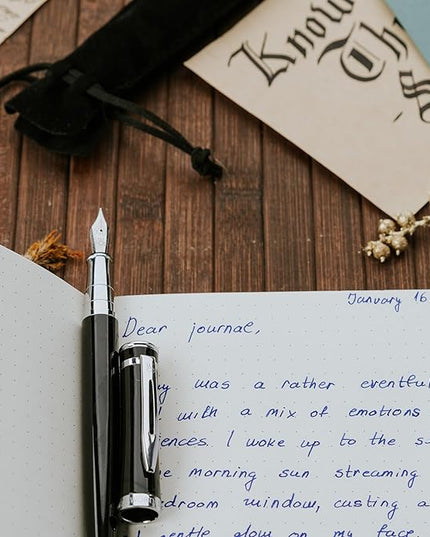 Know
Th
January 16
Dear journal,
ay was a rather eventfu
with a mix of emotions
iences. I woke up to the s
e morning sun streaming
droom window, casting a
gentle glow on my face.